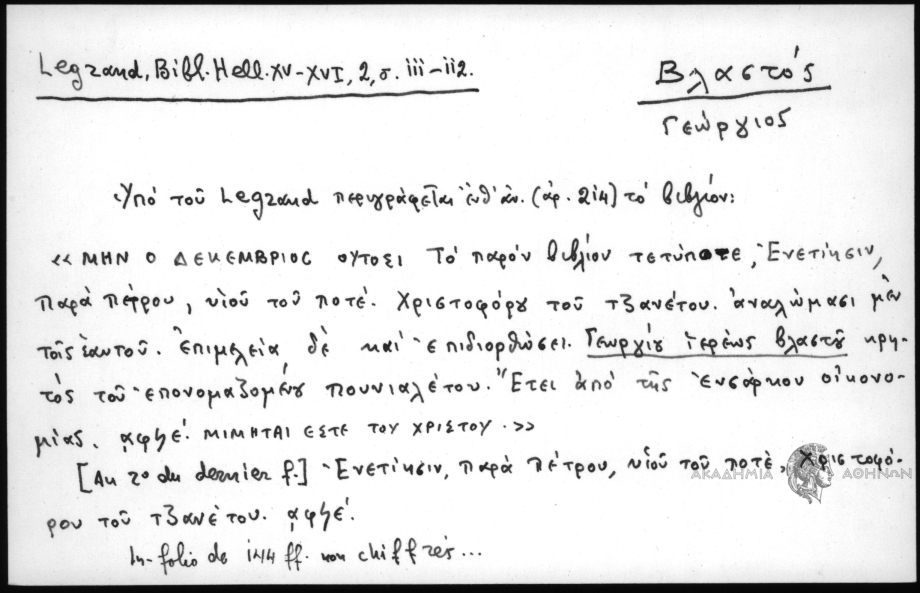 Legrand, Bibl. Hell. XV-XVI, 2, σ. 111-112.
Βλαστός
Γεώργιος
Ὑπό τοῦ Legrand περιγράφεται ἐνθ' ἀν. (ἀρ. 214) τό βιβλίον:
«ΜΗΝ Ο ΔΕΚΕΜΒΡΙΟС ΟΥΤΟΣΙ Τό παρόν βιβλίον τετύποτε, Ἐνετίησιν,
παρά Πέτρου, υἱοῦ τοῦ ποτέ. Χριστοφόρου τοῦ τζανέτου. ἀναλώμασι μέν
τοῖς ἑαυτοῦ. Ἐπιμελεία δέ καί ἐπιδιορθώσει. Γεωργίου ἱερέως βλαστοῦ κρη-
τός τοῦ ἐπονομαζομένου πουνιαλέτου. Ἔτει ἀπό τῆς ἐνσάρκου οἰκονο-
μίας. ͵αφϟέ. ΜΙΜΗΤΑΙ ΕΣΤΕ ΤΟΥ ΧΡΙΣΤΟΥ.»
[Au vo du dernier f.] Ἐνετίησιν, παρά Πέτρου, υἱοῦ τοῦ ποτὲ, Χριστοφό-
ρου τοῦ τζανέτου. ͵αφϟέ.
In-folio de 144 ff. non chiffrés...
ΑΚΑΔΗΜΙΑ ΑΘΗΝΩΝ